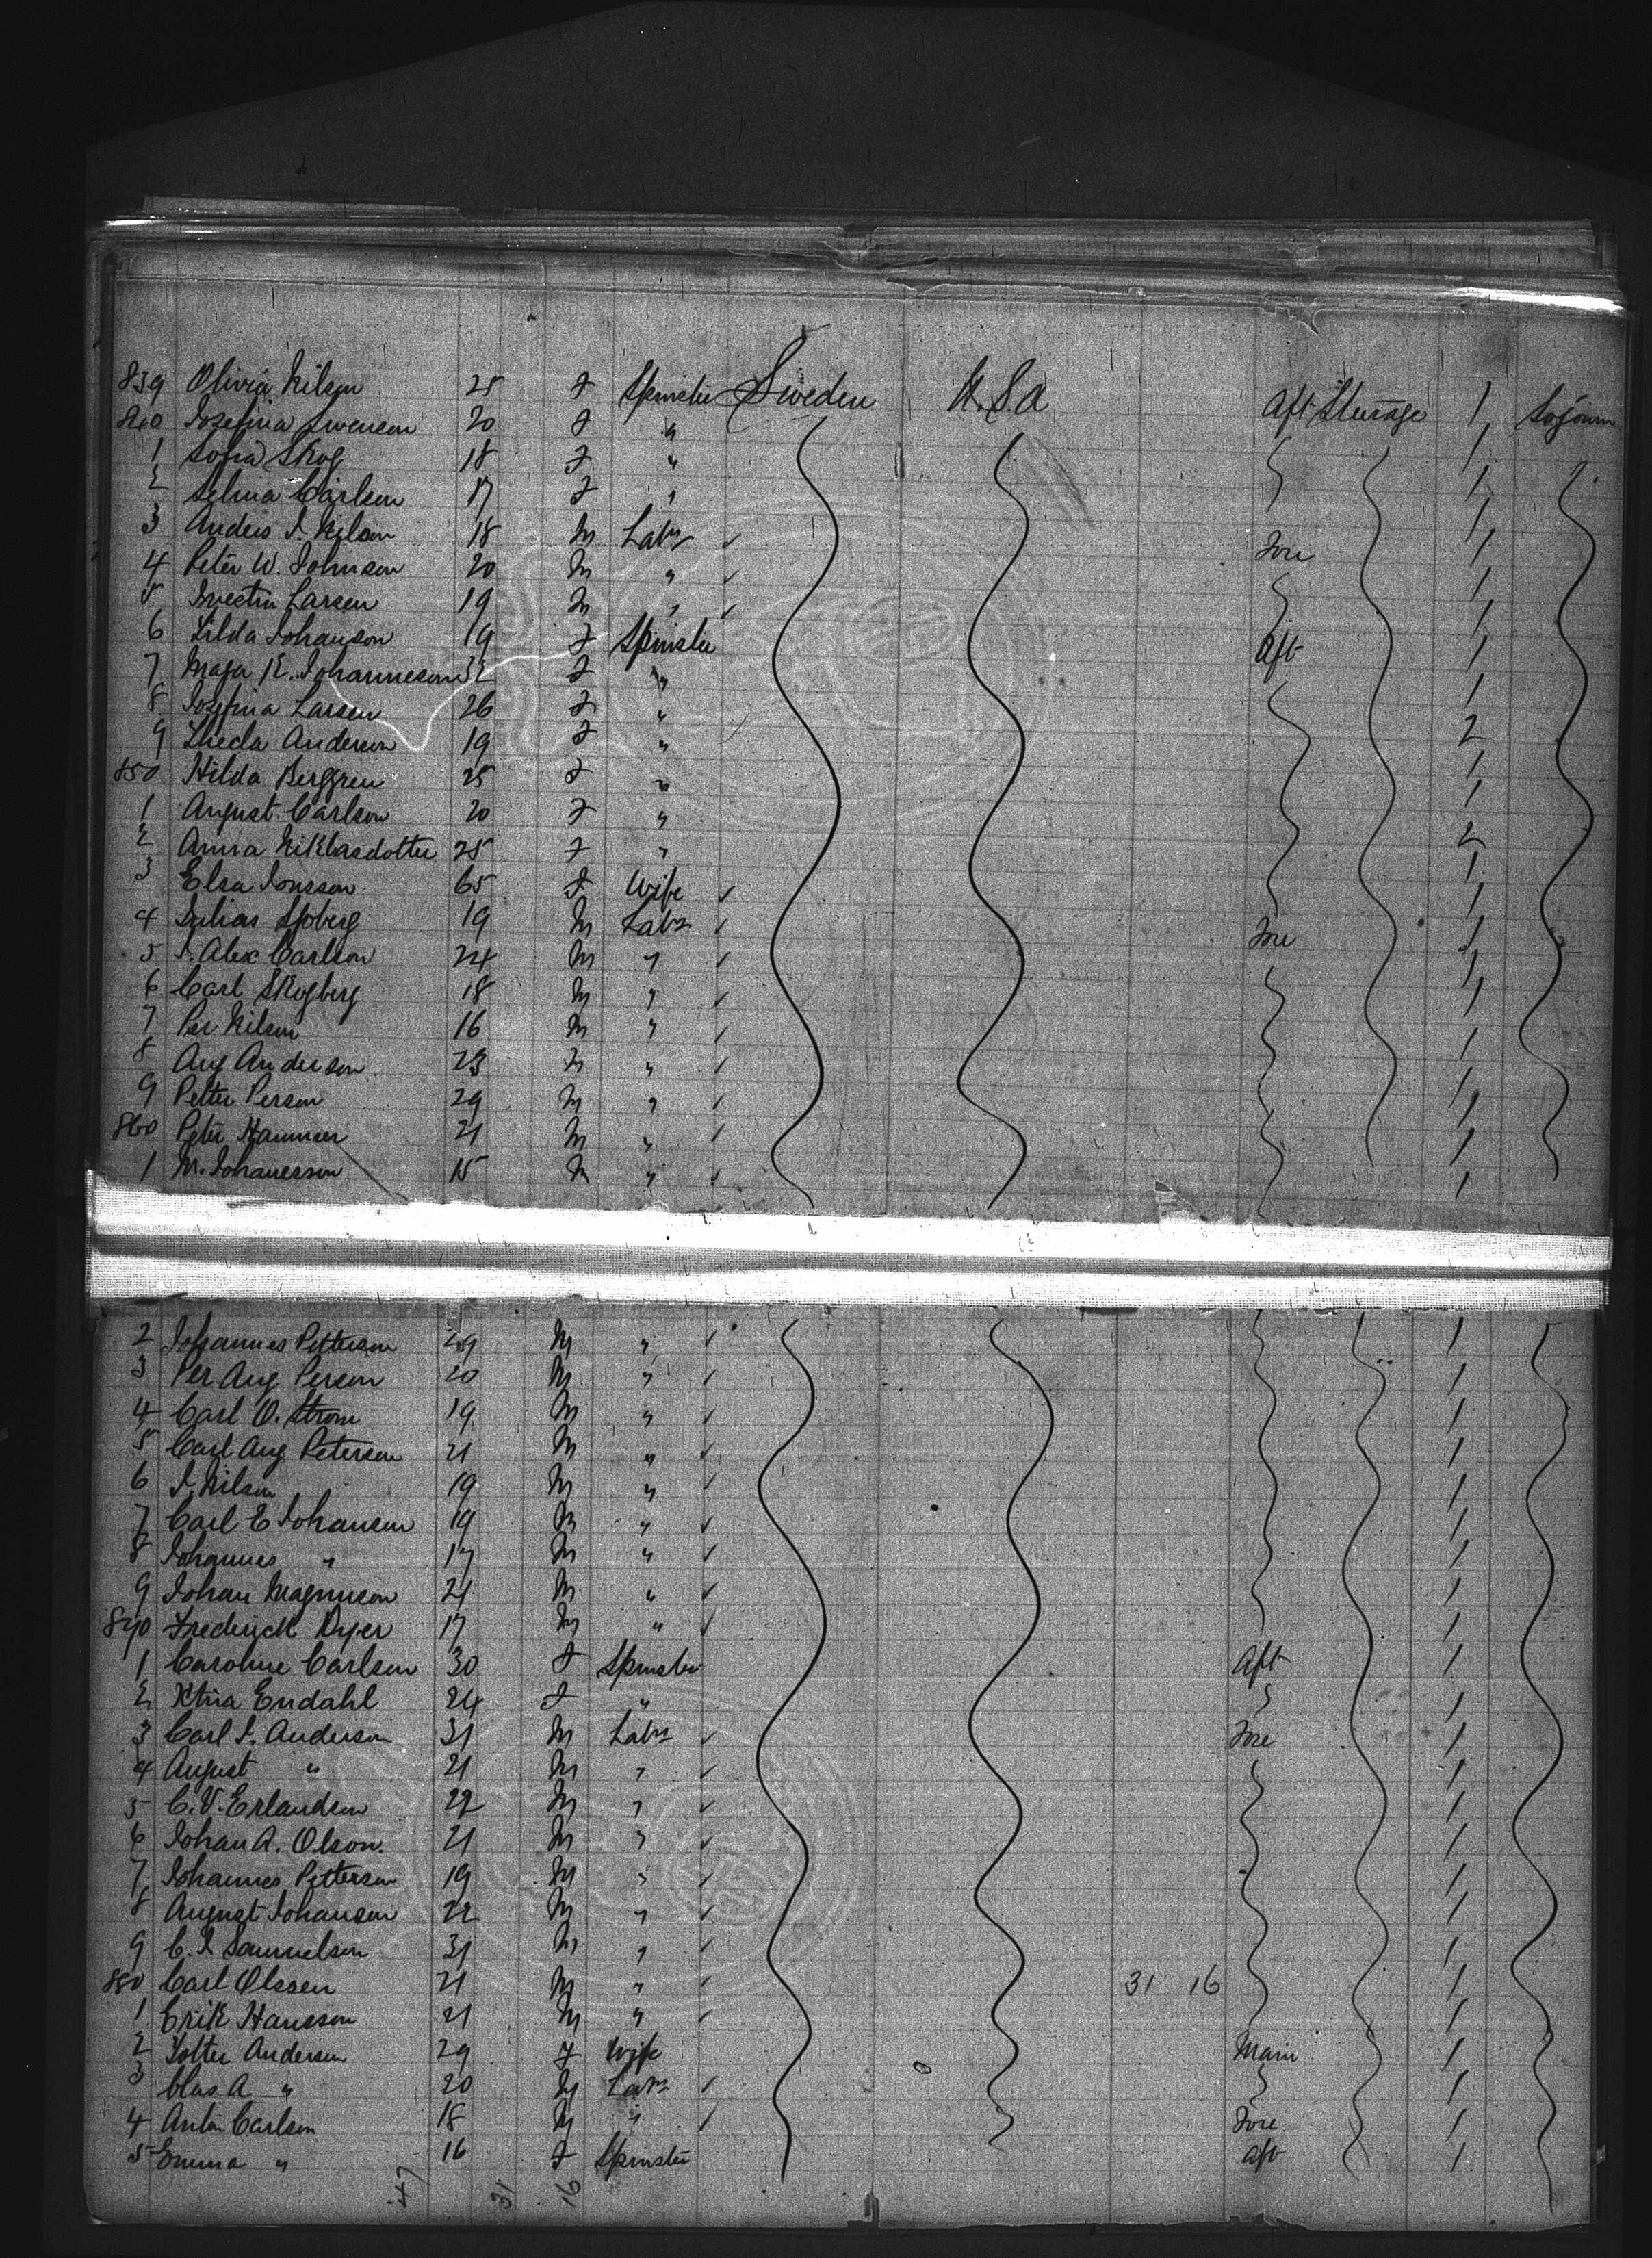 839 Olivia Nilson 25 F Spinster Sweden U.S.A Aft Steerage 1 Sojourn
840 Josefina Swenson 20 F " 1
1 Sofia Skog 18 F " 1
2 Selma Carlson 17 F " 1
3 Anders J. Nilson 18 M Labr ✓ Fore 1
4 Peter W. Johnson 20 M " ✓ 1
5 Larsen 19 M " ✓ 1
6 Johanson 19 F Spinster Aft 1
7 Maja K. Johanneson 32 F " 1
8 Josefina Larsen 26 F " 2
9 Anderson 19 F " 1
850 Hilda Berggren 25 F " 1
1 August Carlson 20 F " 2
2 Anna Niklasdotter 25 F " 1
3 Elsa Jonsson 65 F Wife ✓ 1
4 Julius Sjoberg 19 M Labr ✓ Fore 1
5 J. Alex Carlson 24 M " ✓ 1
6 Carl Skogberg 18 M " ✓ 1
7 Per Nilson 16 M " ✓ 1
8 Aug Anderson 23 M " ✓ 1
9 Petter Person 29 M " ✓ 1
860 Peter Hammer 21 M " ✓ 1
1 M. Johanesson 15 M " ✓ 1
2 Johannes Petterson 29 M " ✓ 1
3 Per Aug Person 20 M " ✓ 1
4 Carl O. Strom 19 M " ✓ 1
5 Carl Aug Peterson 21 M " ✓ 1
6 J. Nilson 19 M " ✓ 1
7 Carl E Johanson 19 M " ✓ 1
8 Johannes " 17 M " ✓ 1
9 Johan Magnuson 21 M " ✓ 1
870 Frederick Dyer 17 M " ✓ 1
1 Caroline Carlson 30 F Spinster Aft 1
2 Xtina Endahl 24 F " 1
3 Carl J. Anderson 31 M Labr ✓ Fore 1
4 August " 21 M " ✓ 1
5 C. V. Erlandson 22 M " ✓ 1
6 Johan A. Olson 21 M " ✓ 1
7 Johannes Petterson 19 M " ✓ 1
8 August Johanson 22 M " ✓ 1
9 C. J. Samuelson 31 M " ✓ 1
880 Carl Olssen 21 M " ✓ 31 16 1
1 Erik Hansson 21 M " ✓ 1
2 Anderson 29 F Wife Main 1
3 Clas A " 20 M Labr ✓ 1
4 Anton Carlson 18 M " ✓ Fore 1
5 Emma " 16 F Spinster Aft 1
47 31 16